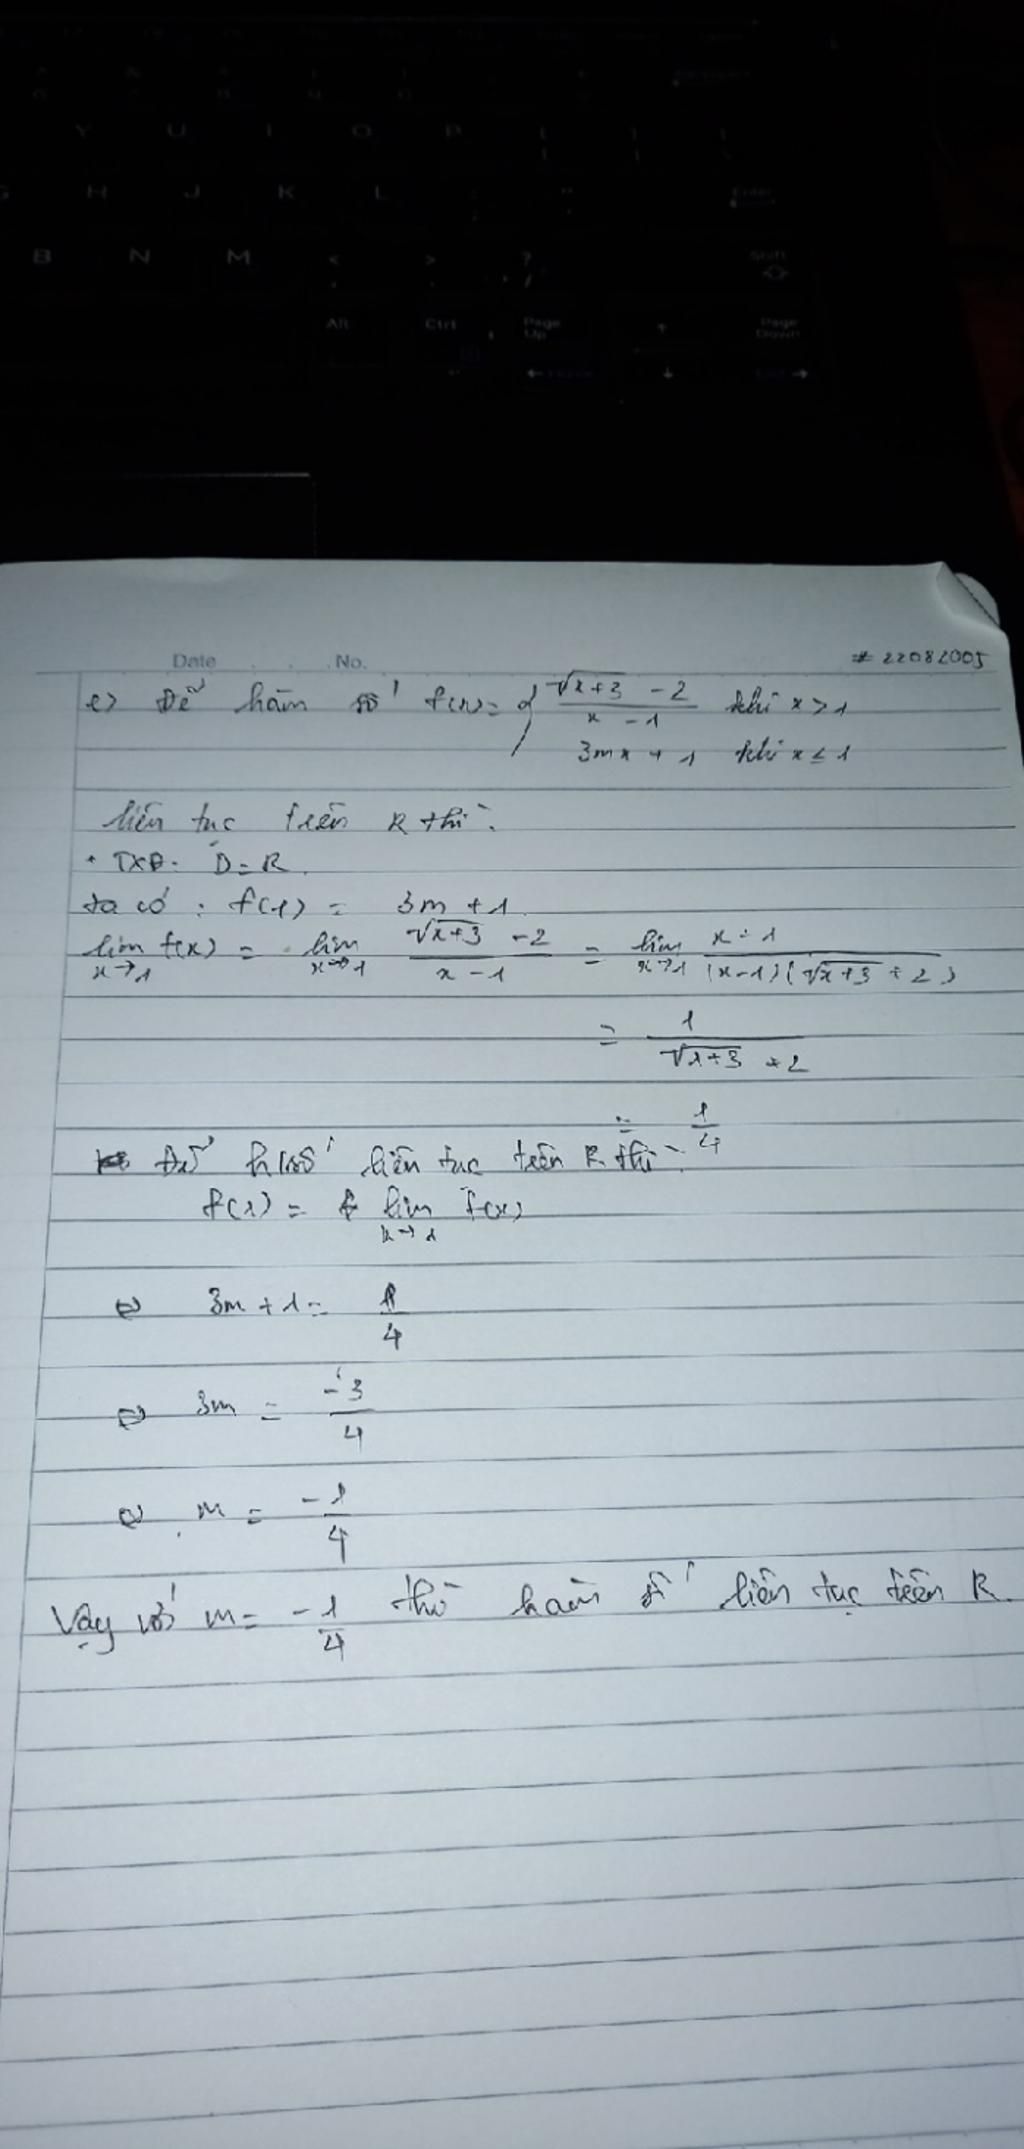 Y U I O P
G H J K L Enter
B N M < > ? Shift
Alt Ctrl Page Up Page Down
Date No. # 22082005
e) Để hàm số f(x) = { (√x+3 - 2)/(x - 1) khi x > 1
3mx + 1 khi x ≤ 1
liên tục trên R thì:
+ TXĐ: D = R.
ta có : f(1) = 3m + 1
lim x→1 f(x) = lim x→1 (√x+3 - 2)/(x - 1) = lim x→1 (x - 1)/((x-1)(√x+3 + 2))
= 1/(√1+3 + 2)
= 1/4
Để h/số liên tục trên R thì
f(1) = lim x→1 f(x)
⇔ 3m + 1 = 1/4
⇔ 3m = -3/4
⇔ m = -1/4
Vậy với m = -1/4 thì hàm số liên tục trên R.